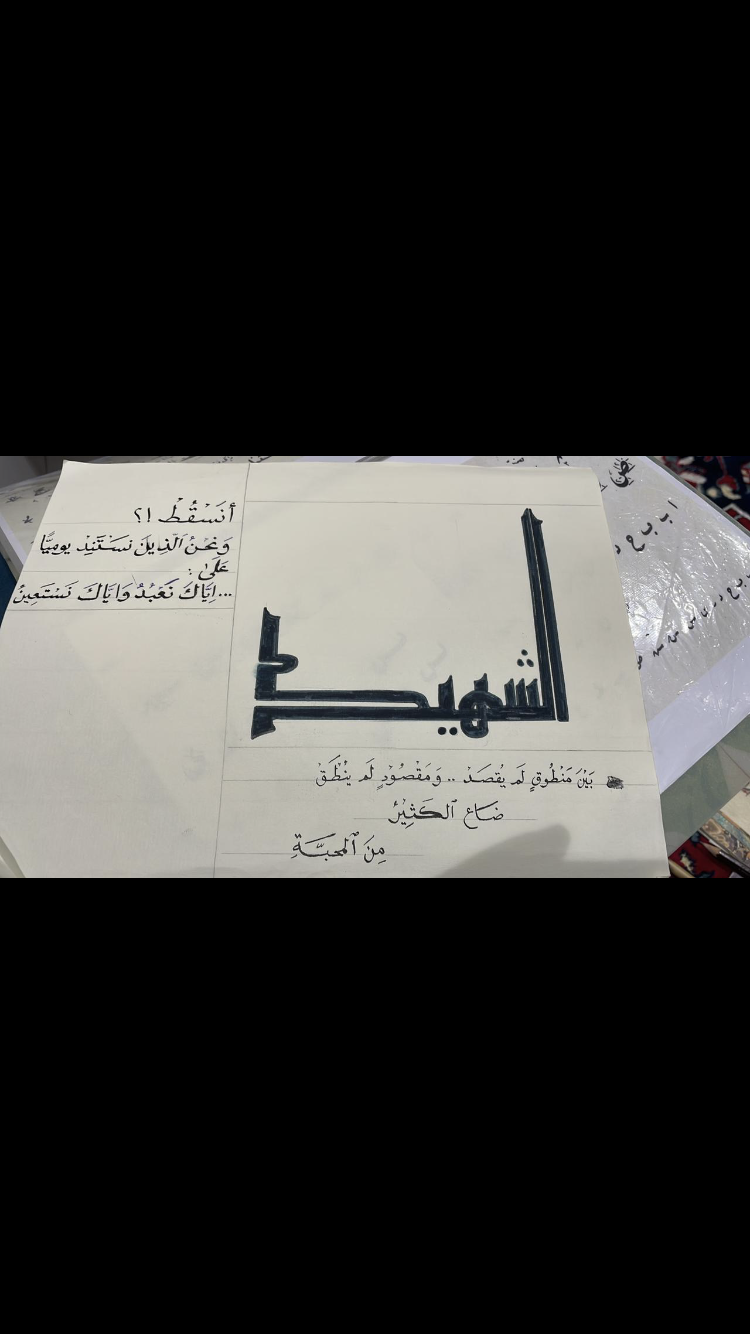 أَنَسْقُطُ !؟
وَنَحْنُ الَّذِينَ نَسْتَنِد يوميًّا
عَلَىٰ :
...اِيَّاكَ نَعْبُدُ وَاِيَّاكَ نَسْتَعِينُ
الشهيد
بَيْنَ مَنْطُوقٍ لَم يُقصَدْ .. وَمَقْصُودٍ لَم يُنْطَقْ
ضَاعَ ٱلكَثِيْرُ
مِنَ ٱلمَحَبَّةِ